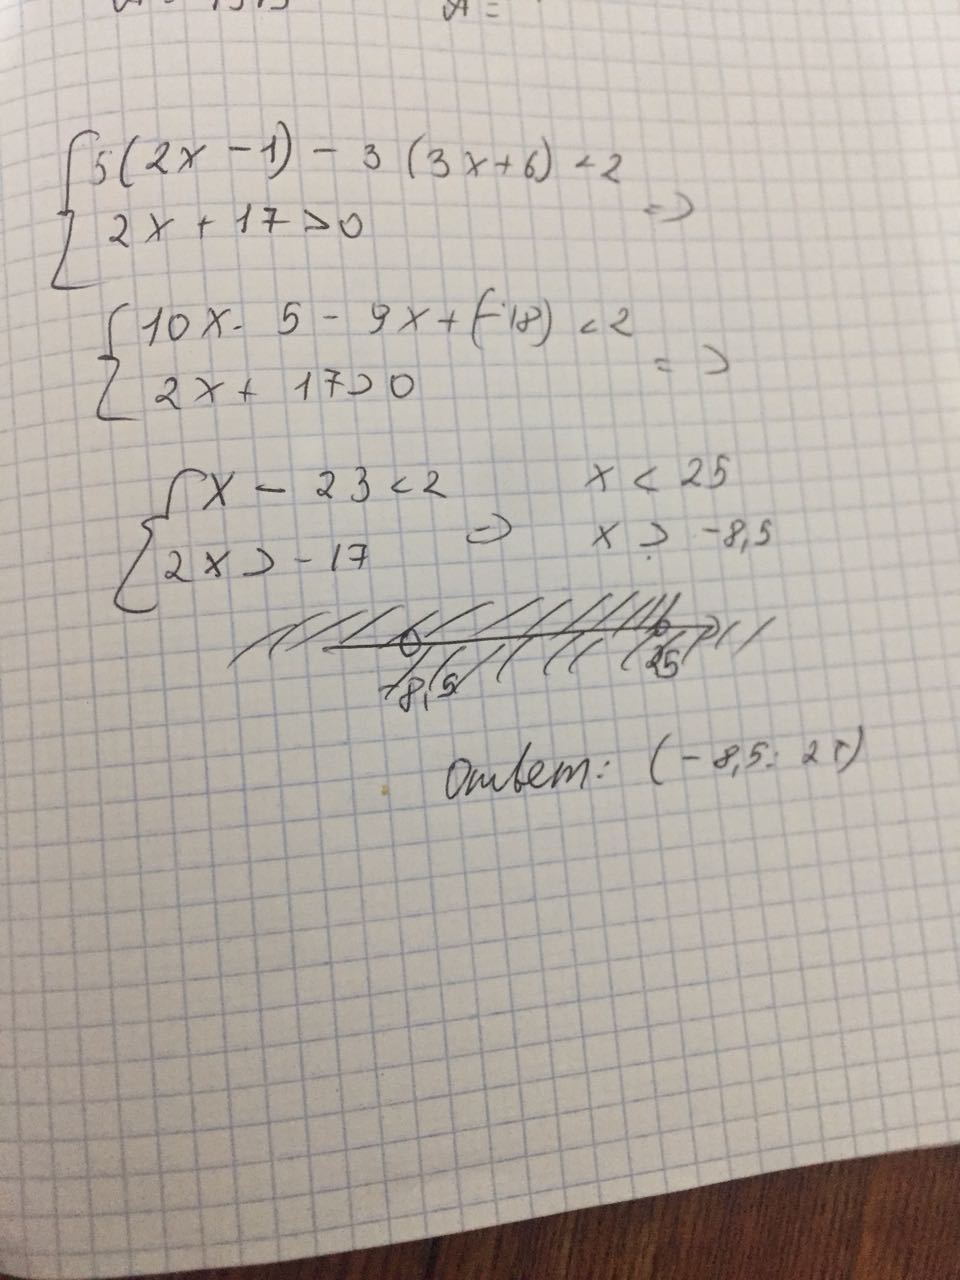 5(2x - 1) - 3(3x + 6) < 2 =>
2x + 17 > 0
10x - 5 - 9x + (-18) < 2 =>
2x + 17 > 0
x - 23 < 2 => x < 25
2x > -17 x > -8,5
-8,5 25
Ответ: (-8,5; 25)